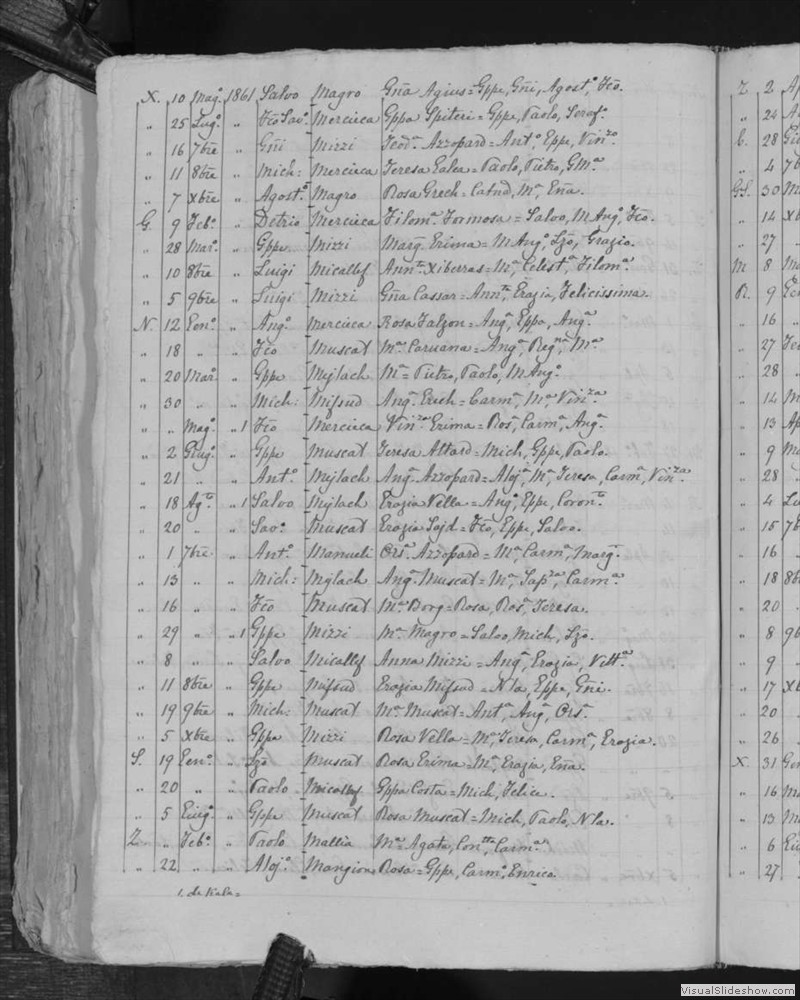 X. 10 Mag.º 1861 Salvo Magro Gña Agius = Gppe, Gñi, Agost.º, Fcõ.
„ 25 Lug.º „ Fcõ Sav.º Mercieca Gppa Spiteri = Gppe, Paolo, Seraf.º
„ 16 7bre „ Gñi Mizzi Teod.ª Azzopard = Ant.º, Eppe, Vinz.º
„ 11 8bre „ Mich: Mercieca Teresa Galea = Paolo, Pietro, GM.ª
„ 7 Xbre „ Agost.º Magro Rosa Grech = Catnã, M.ª, Eña.
G. 9 Feb.º „ Mercieca Filom.ª Formosa = Salvo, M Ang.º, Fcõ.
„ 28 Mar.º „ Gppe. Mizzi Marg. Erima = M Ang.º, Lzõ, Grazia.
„ 10 8bre „ Luigi Micallef Ann.ª Xiberras = M.ª, Celest.ª, Filom.ª
„ 5 9bre „ Luigi Mizzi Gña Cassar = Ann.ª, Erazia, Felicissima.
N. 12 Een.º „ Ang.º Mercieca Rosa Falzon = Ang.ª, Eppa, Ang.ª
„ 18 „ „ Fcõ Muscat M.ª Caruana = Ang.ª, Reg.ª, M.ª
„ 20 Mar. „ Gppe Mejlach M.ª = Pietro, Paolo, M Ang.º
„ 30 „ „ Mich: Mifsud Ang.ª Erech = Carm.ª, M.ª Vinz.ª
„ „ Mag.º „ 1 Fcõ Mercieca Vinz.ª Erima = Ros.ª, Carm.ª, Ang.ª
„ 2 Giug.º „ Gppe Muscat Teresa Attard = Mich, Gppe, Paolo.
„ 21 „ „ Ant.º Mejlach Ang.ª Azzopard = Aloj.ª, M.ª, Teresa, Carm.ª, Vinz.ª
„ 18 Ag.º „ 1 Salvo Mejlach Erazia Vella = Ang.º, Eppe, Coron.º
„ 20 „ „ Sav.º Muscat Erazia Sojd = Fcõ, Eppe, Salvo.
„ 1 7bre „ Ant.º Manueli Ors.ª Azzopard = M.ª, Carm.ª, Marg.ª
„ 13 „ „ Mich: Mejlach Ang.ª Muscat = M.ª, Sapz.ª, Carm.ª
„ 16 „ „ Fcõ Muscat M.ª Borg = Rosa, Ros.ª, Teresa.
„ 29 „ „ 1 Gppe Mizzi M.ª Magro = Salvo, Mich, Lzõ.
„ 8 „ „ Salvo Micallef Anna Mizzi = Ang.ª, Erazia, Vitt.ª
„ 11 8bre „ Gppe Mifsud Erazia Mifsud = Nla, Eppe, Gñi.
„ 19 9bre „ Mich: Muscat M.ª Muscat = Ant.ª, Ang.ª, Ors.ª
„ 5 Xbre „ Gppe Mizzi Rosa Vella = M.ª, Teresa, Carm.ª, Erazia.
S. 19 Een.º „ Lzõ Muscat Rosa Erima = M.ª, Erazia, Eña.
„ 20 „ „ Paolo Micallef Gppa Costa = Mich, Felice.
„ 5 Eiug.º „ Gppe Muscat Rosa Muscat = Mich, Paolo, Nla.
Z. „ Feb.º „ Paolo Mallia M.ª = Agata, Con.ª, Carm.ª
„ 22 „ „ Aloj.º Mangion Rosa = Gppe, Carm.º, Enrico.
1. de Kala =
Z 2
„ 24
b. 28
„ 4
GS. 30
„ 14
„ 27
M 8
R. 9
„ 16
„ 27
„ 28
„ 14
„ 13
„ 9
„ 28
„ 4
„ 15
„ 16
„ 18
„ 20
„ 8
„ 9
„ 17
„ 20
„ 26
X. 31
„ 16
„ 13
„ 6
„ 27
VisualSlideshow.com